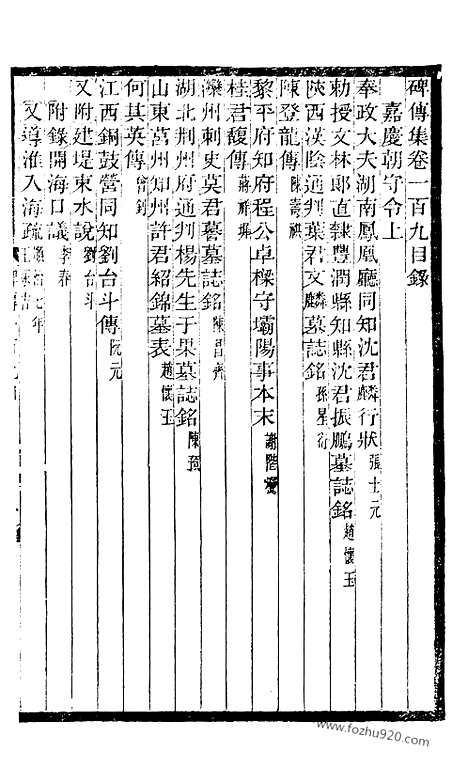 碑傳集卷一百九目錄
嘉慶朝守令上
奉政大夫湖南鳳凰廳同知沈君麟行狀 張士元
勅授文林郎直隸豐潤縣知縣沈君振鵬墓誌銘 趙懷玉
陝西漢陰通判葉君文麟墓誌銘 孫星衍
陳登龍傳 陳壽祺
黎平府知府程公卓樑守壩陽事本末 謝階
桂君馥傳 蔣祥墀
灤州刺史莫君墓誌銘 陳昌齊
湖北荆州府通判楊先生于果墓誌銘 陳預
山東莒州知州許君紹錦墓表 趙懷玉
何其英傳 曾釗
江西銅鼓營同知劉台斗傳 阮元
又附建堤束水說 劉台斗
附錄開海口議 李春
又導淮入海疏 七年
www.fozhu920.com